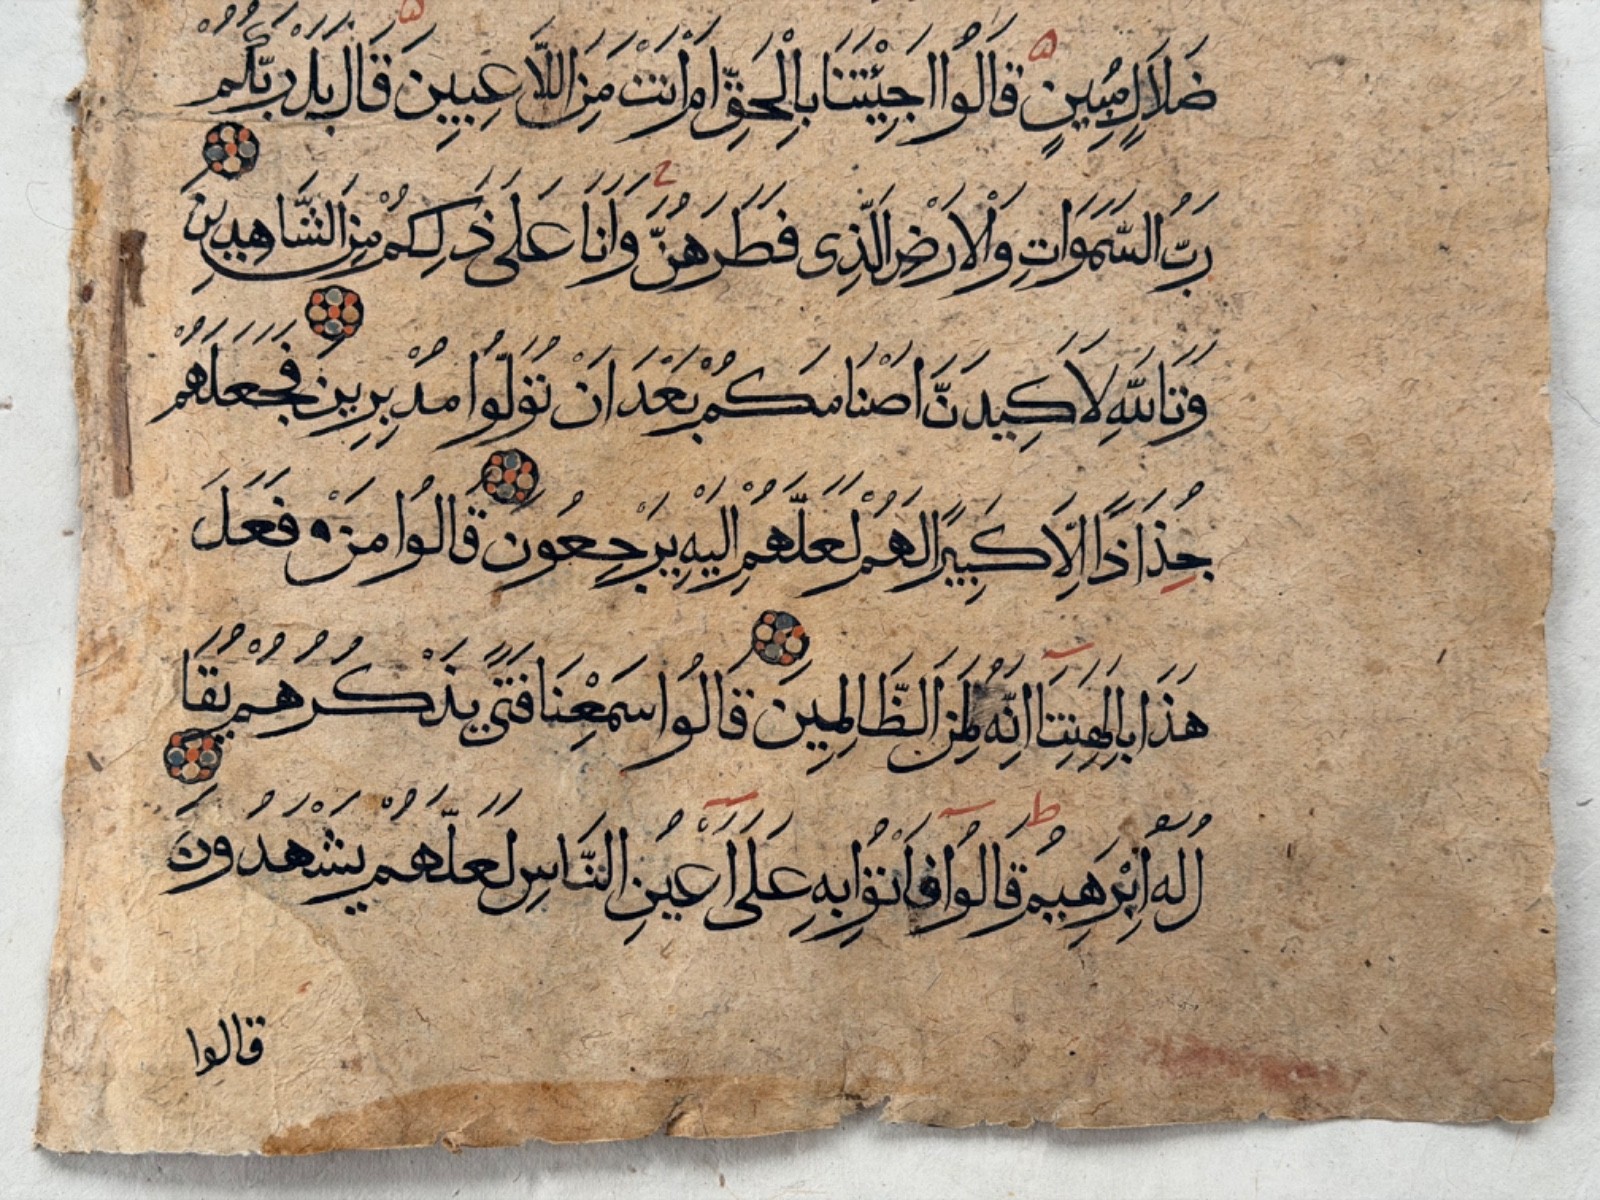 ضَلَالٍ مُبِينٍ قَالُوا اَجِئْتَنَا بِالْحَقِّ اَمْ اَنْتَ مِنَ اللَّاعِبِينَ قَالَ بَلْ رَبُّكُمْ
رَبُّ السَّمَوَاتِ وَالْاَرْضِ الَّذِى فَطَرَهُنَّ وَاَنَا عَلَى ذَلِكُمْ مِنَ الشَّاهِدِينَ
وَتَاللَّهِ لَاَكِيدَنَّ اَصْنَامَكُمْ بَعْدَ اَنْ تُوَلُّوا مُدْبِرِينَ فَجَعَلَهُمْ
جُذَاذًا اِلَّا كَبِيرًا لَهُمْ لَعَلَّهُمْ اِلَيْهِ يَرْجِعُونَ قَالُوا مَنْ و فَعَلَ
هَذَا بِاٰلِهَتِنَا اِنَّهُ لَمِنَ الظَّالِمِينَ قَالُوا سَمِعْنَا فَتًى يَذْكُرُهُمْ يُقَا
لُ لَهُ اِبْرَهِيمُ قَالُوا فَاْتُوا بِهِ عَلَى اَعْيُنِ النَّاسِ لَعَلَّهُمْ يَشْهَدُونَ
قالوا